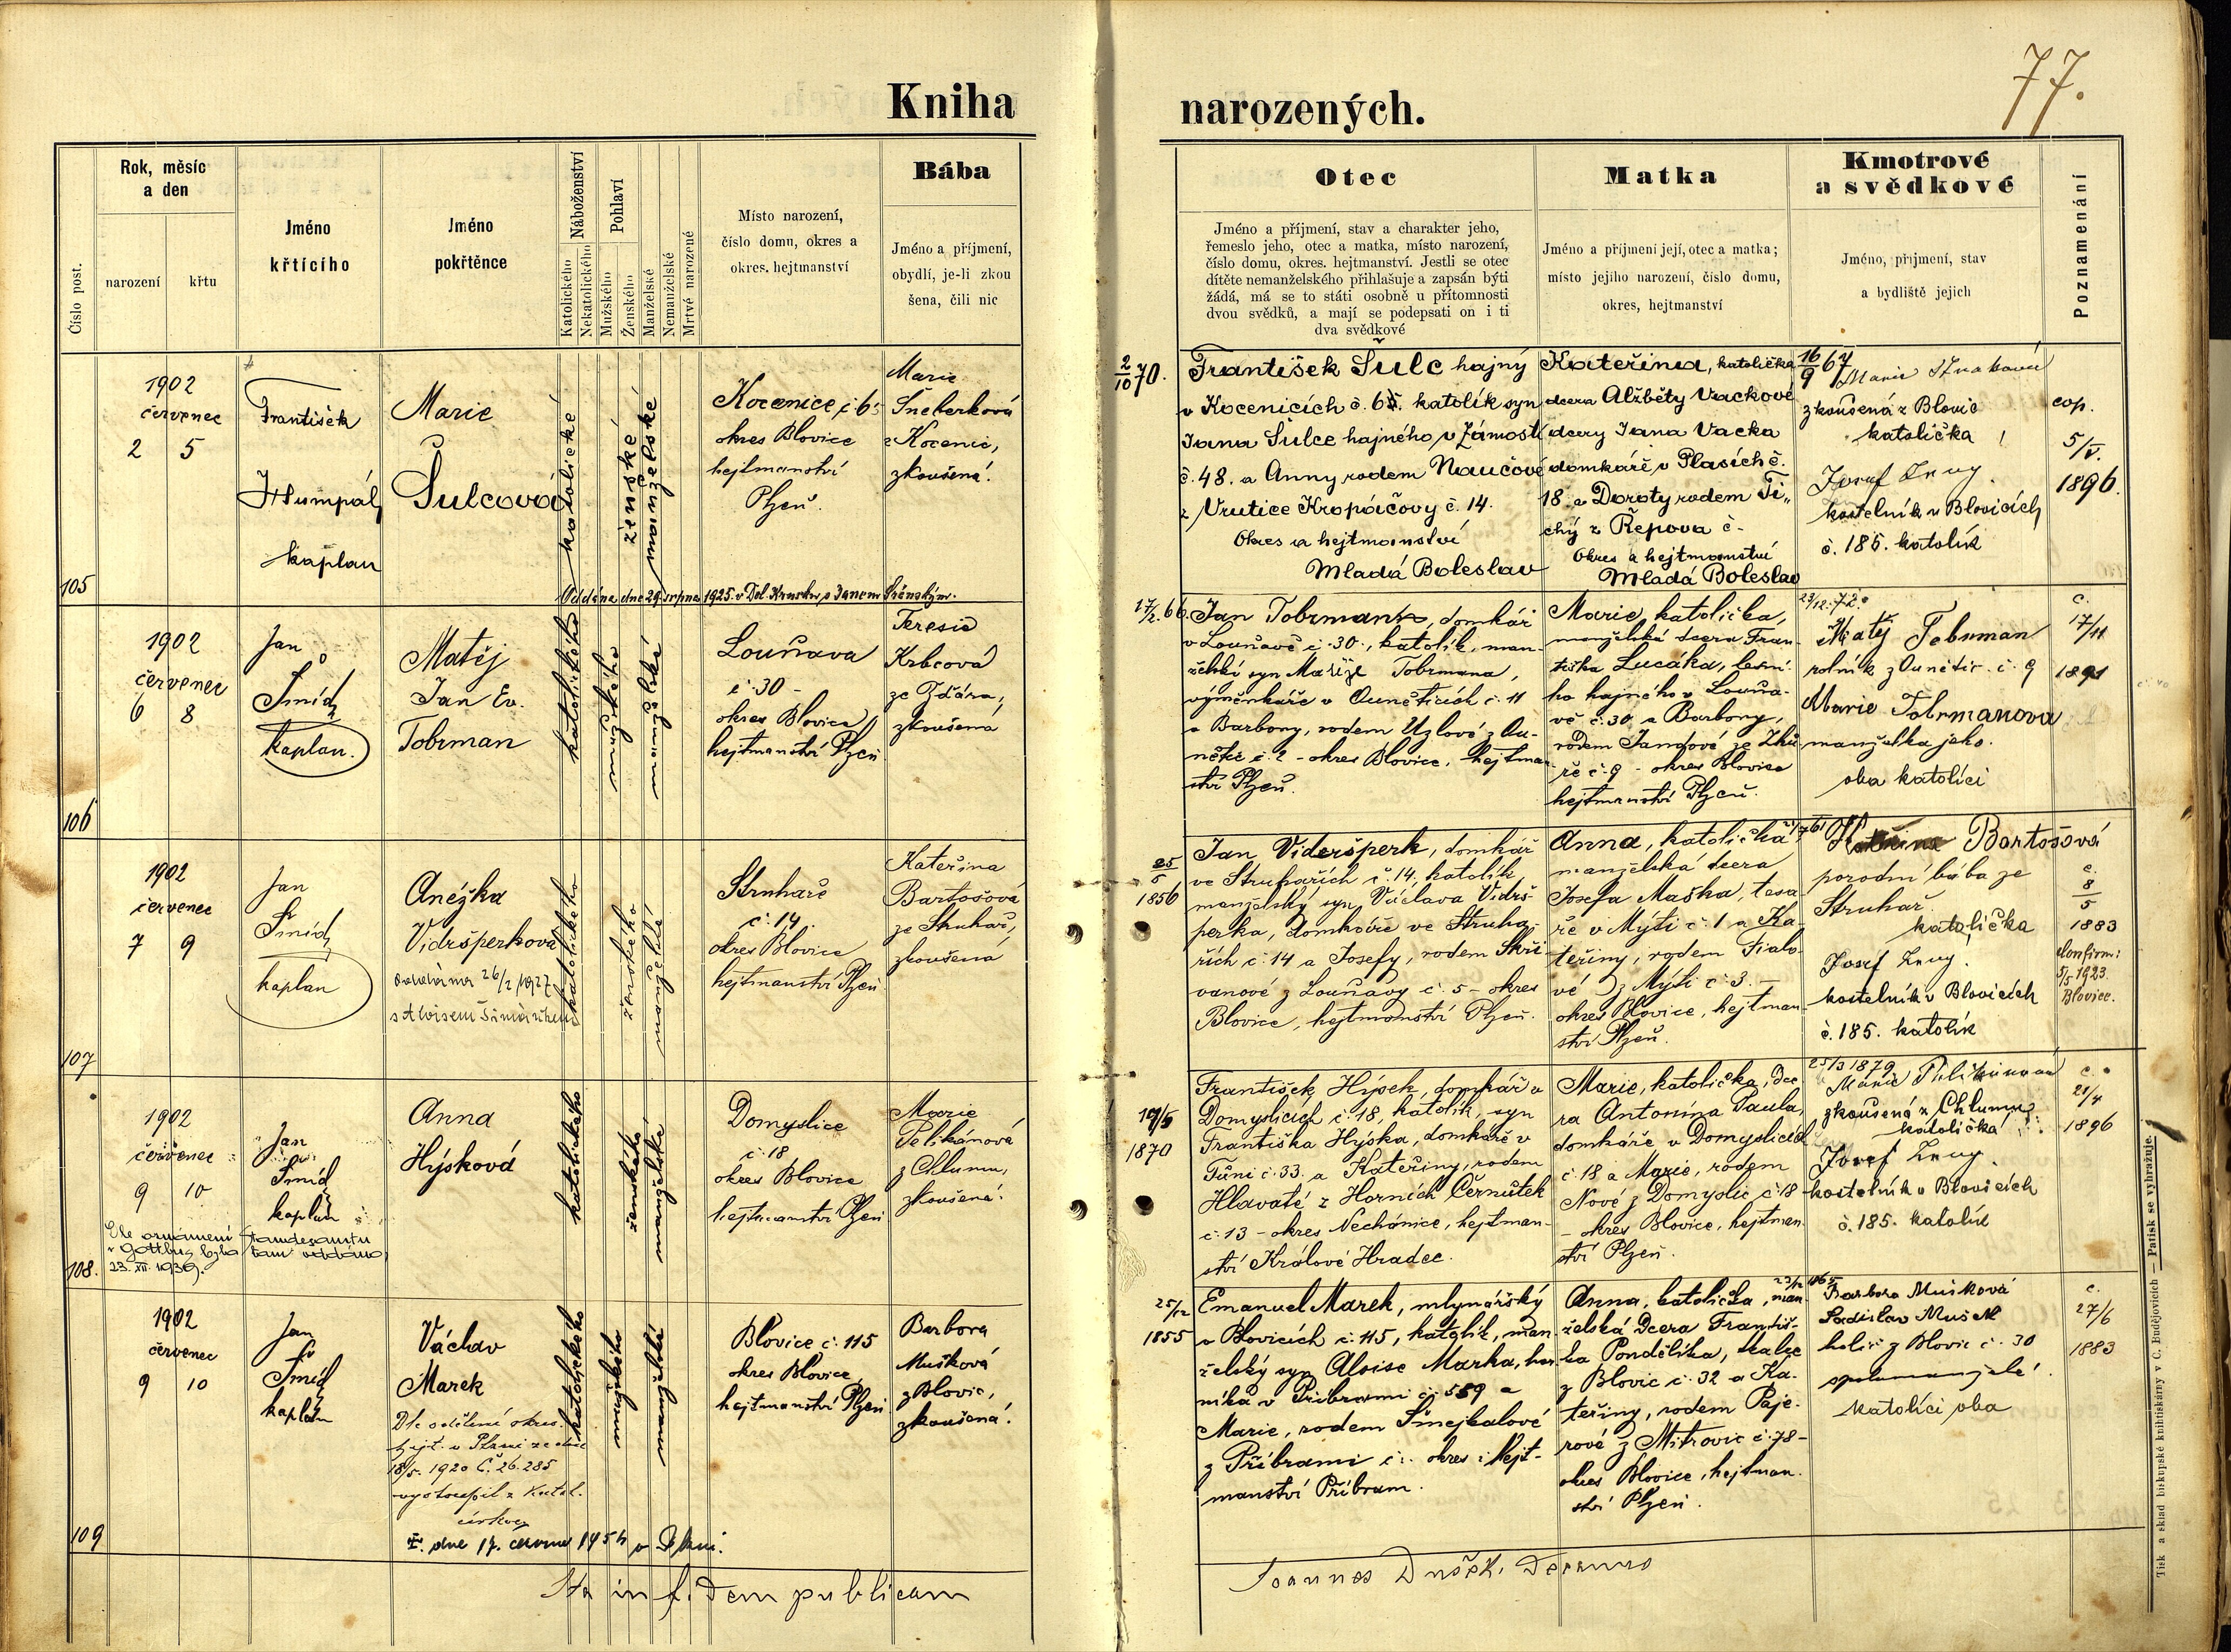 77.
Kniha narozených.
Číslo post.
Rok, měsíc
a den
narození
křtu
Jméno
křtícího
Jméno
pokřtěnce
Náboženství
Katolického
Nekatolického
Pohlaví
Mužského
Ženského
Manželské
Nemanželské
Mrtvé narozené
Místo narození,
číslo domu, okres a
okres. hejtmanství
Bába
Jméno a příjmení,
obydlí, je-li zkou
šena, čili nic
Otec
Jméno a příjmení, stav a charakter jeho,
řemeslo jeho, otec a matka, místo narození,
číslo domu, okres. hejtmanství. Jestli se otec
dítěte nemanželského přihlašuje a zapsán býti
žádá, má se to státi osobně u přítomnosti
dvou svědků, a mají se podepsati on i ti
dva svědkové
Matka
Jméno a příjmení její, otec a matka;
místo jejího narození, číslo domu,
okres, hejtmanství
Kmotrové
a svědkové
Jméno, příjmení, stav
a bydliště jejich
Poznamenání
105
1902
červenec
2 5
František
Hlumpál
kaplan
Marie
Šulcová
katolické
ženské
manželské
Kocenice č. 65
okres Blovice
hejtmanství
Plzeň.
Marie
Šneberková
z Kocenic,
zkoušená.
Oddána dne 29. srpna 1925. v Dol. s Janem
2/10 70.
František Šulc hajný
v Kocenicích č. 65. katolík syn
Jana Šulce hajného v Zámostí
č. 48. a Anny rodem Naučové
z Vrutice Kropáčovy č. 14.
Okres a hejtmanství
Mladá Boleslav
Kateřina, katolička
dcera Alžběty Vackové
dcery Jana Vacka
domkáře v Plasích č.
18. a Doroty rodem Ti„
chý z Řepova č. -
Okres a hejtmanství
Mladá Boleslav
16/9 67
Marie
zkoušená z Blovic
katolička
Josef
kostelník v Blovicích
č. 185. katolík
cop.
5/V.
1896.
106
1902
červenec
6 8
Jan
Šmíd
kaplan.
Matěj
Jan Ev.
Tobrman
katolického
mužského
manželské
Louňava
č. 30 -
okres Blovice
hejtmanství Plzeň
Teresie
Krbcová
ze Zďára,
zkoušená
17/2. 66.
Jan Tobrman, domkář
v Louňavě č. 30., katolík, man-
želský syn Matěje Tobrmana,
výměnkáře v Ouněticích č. 11
a Barbory, rodem Uzlové z Ou-
nětic č. 2 - okres Blovice, hejtman-
ství Plzeň.
23/12. 72.
Marie, katolička,
manželská dcera Fran-
tiška Lucáka, lesní-
ho hajného v Louňa-
vě č. 30 a Barbory,
rodem Jandové ze Zhů-
ře č. 9 - okres Blovice
hejtmanství Plzeň.
Matěj Tobrman
rolník z Ounětic č. 9
Marie Tobrmanova
manželka jeho.
oba katolíci
c.
17/11
1891
107
1902
červenec
7 9
Jan
Šmíd
kaplan
Anežka
Vidršperková
oddána 26/2 1927
s Aloisem
katolického
ženského
manželské
Struhaře
č. 14.
okres Blovice
hejtmanství Plzeň
Kateřina
Bartošová
ze Struhař,
zkoušená
25/5
1856
Jan Videršperk, domkář
ve Struhařích č. 14. katolík,
manželský syn Václava Vidrš-
perka, domkáře ve Struha-
řích č. 14 a Josefy, rodem Skři-
vanové z Louňavy č. 5 - okres
Blovice, hejtmanství Plzeň.
Anna, katolička
manželská dcera
Josefa Maška, tesa-
ře v Mýti č. 1 a Ka-
teřiny, rodem Fialo-
vé z Mýti č. 3. -
okres Blovice, hejtman-
ství Plzeň.
Kateřina Bartošová
porodní bába ze
Struhař
katolička
Josef
kostelník v Blovicích
č. 185. katolík
c.
8/5
1883
Konfirm:
5/5 1923.
Blovice.
108.
1902
červenec
9 10
Jan
Šmíd
kaplan
Anna
Hýsková
katolického
ženského
manželská
Domyslice
č. 18
okres Blovice
hejtmanství Plzeň
Marie
Pelikánová
z Chlumu,
zkoušená.
Dle oznámení Standesamtu
v Gottbus byla tam oddána
23. XII. 1939.
19/5
1870
František Hýsek, domkář v
Domyslicích č. 18, katolík, syn
Františka Hýska, domkáře v
Tůni č. 33. a Kateřiny, rodem
Hlavaté z Horních Černůtek
č. 13 - okres Nechánice, hejtman-
ství Králové Hradec.
25/3 1879
Marie, katolička, dce-
ra Antonína Paula,
domkáře v Domyslicích
č. 18 a Marie, rodem
Nové z Domyslic č. 18
- okres Blovice, hejtman-
ství Plzeň.
Marie Pelikánová
zkoušená z Chlumu
katolička
Josef
kostelník v Blovicích
č. 185. katolík
c.
21/4
1896
109
1902
červenec
9 10
Jan
Šmíd
kaplan
Václav
Marek
Dle sdělení okres.
hejt. v Plzni ze dne
18/5. 1920 Č. 26.285
vystoupil z katol.
církve
†. dne 17. června 1954 v Plzni.
katolického
mužského
manželské
Blovice č. 115
okres Blovice,
hejtmanství Plzeň
Barbora
Mušková
z Blovic,
zkoušená.
25/12
1855
Emanuel Marek, mlynářský
v Blovicích č. 115, katolík, man-
želský syn Aloise Marka, hor-
níka v Příbrami č. 559 a
Marie, rodem Šmejkalové
z Příbrami č. - okres i hejt-
manství Příbram.
Anna, katolička, man-
želská dcera Františ-
ka Pondělíka, tkalce
z Blovic č. 32 a Ka-
teřiny, rodem Paje-
rové z Mitrovic č. 78 -
okres Blovice, hejtman-
ství Plzeň.
Barbora Mušková
Ladislav Mušek
holič z Blovic č. 30
spolumanželé
katolíci oba
c.
27/6
1883
Ita in fidem publicam
Joannes Dušek, Decanus
Tisk a sklad biskupské knihtiskárny v Č. Budějovicích — Patisk se vyhražuje.